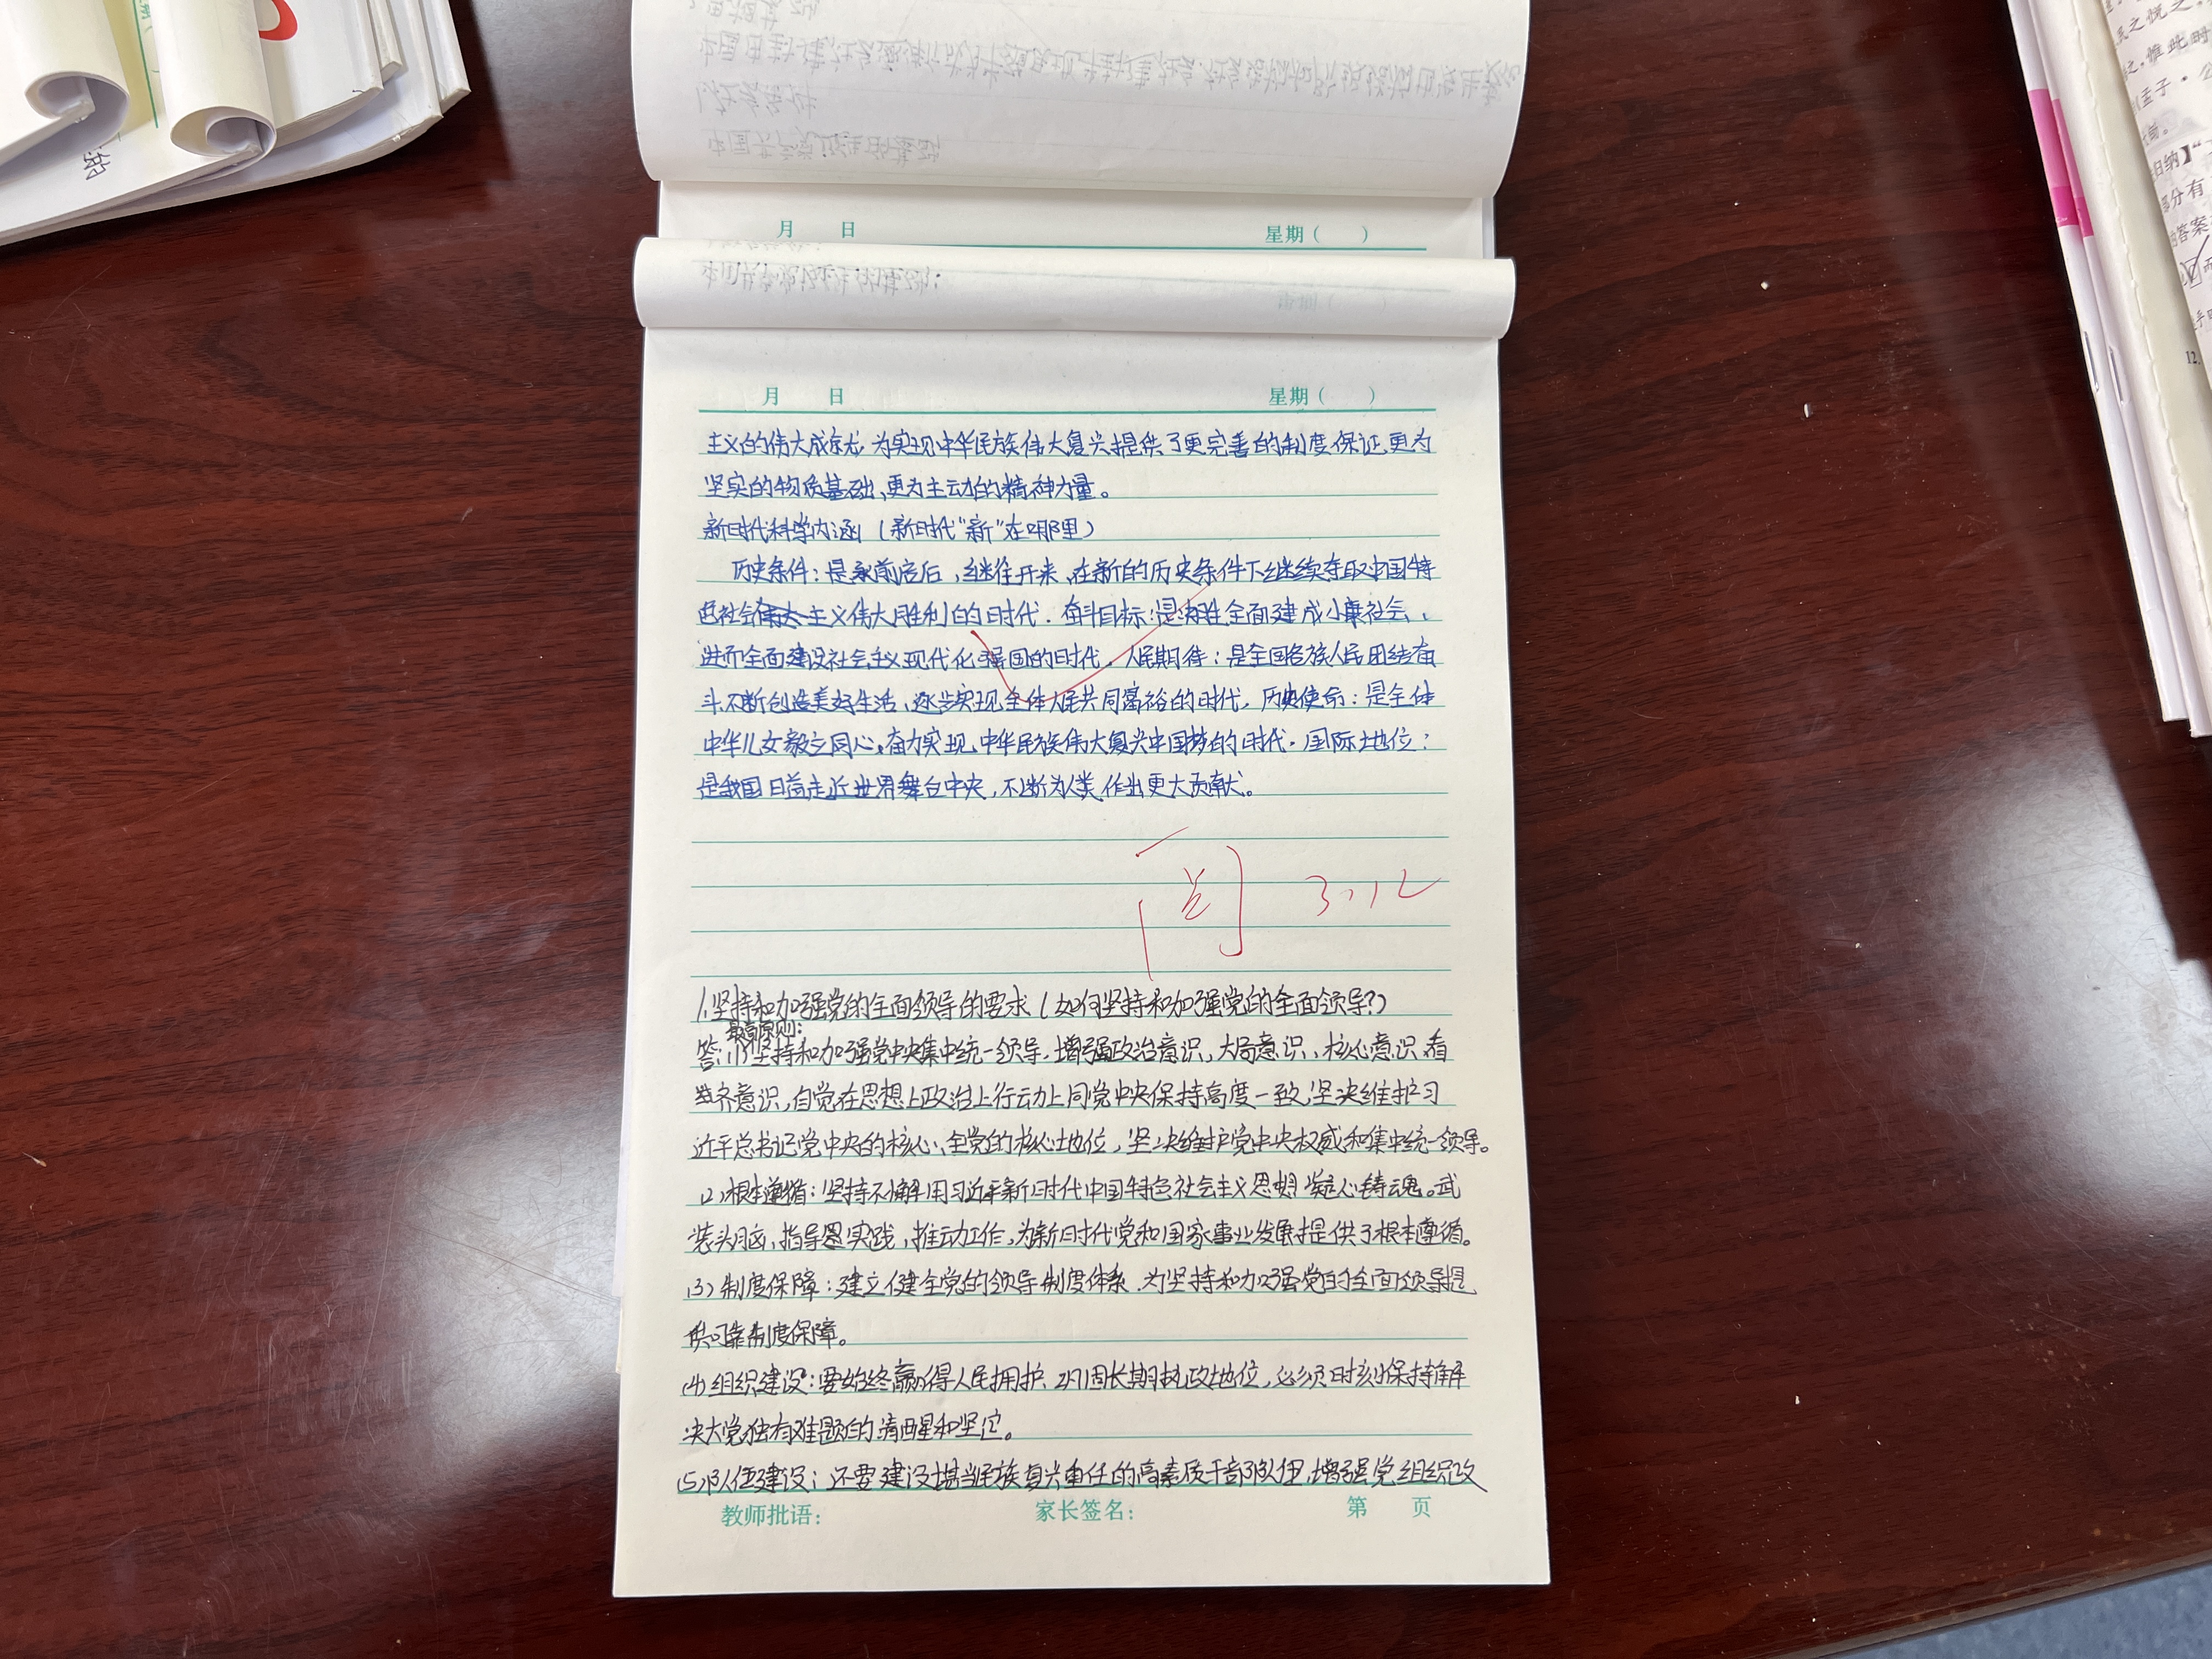 月 日 星期( )
月 日 星期( )
主义的伟大成就,为实现中华民族伟大复兴提供了更完善的制度保证,更为
坚实的物质基础,更为主动的精神力量。
新时代科学内涵(新时代“新”在哪里)
历史条件:是承前启后,继往开来,在新的历史条件下继续夺取中国特
色社会主义伟大胜利的时代.奋斗目标:是决胜全面建成小康社会、
进而全面建设社会主义现代化强国的时代。人民期待:是全国各族人民团结奋
斗,不断创造美好生活,逐步实现全体人民共同富裕的时代。历史使命:是全体
中华儿女勠力同心,奋力实现中华民族伟大复兴中国梦的时代.国际地位:
是我国日益走近世界舞台中央,不断为人类作出更大贡献。
阅 3.12
1.坚持和加强党的全面领导的要求(如何坚持和加强党的全面领导?)
最高原则:
答:(1)坚持和加强党中央集中统一领导.增强政治意识,大局意识、核心意识、看
齐意识,自觉在思想上政治上行动上同党中央保持高度一致,坚决维护习
近平总书记党中央的核心、全党的核心地位,坚决维护党中央权威和集中统一领导。
(2)根本遵循:坚持不懈用习近平新时代中国特色社会主义思想凝心铸魂。武
装头脑,指导实践,推动工作,为新时代党和国家事业发展提供了根本遵循。
(3)制度保障:建立健全党的领导制度体系.为坚持和加强党的全面领导提
供可靠制度保障。
(4)组织建设:要始终赢得人民拥护、巩固长期执政地位,必须时刻保持解
决大党独有难题的清醒和坚定。
(5)队伍建设:还要建设堪当民族复兴重任的高素质干部队伍,增强党组织政
教师批语: 家长签名: 第 页